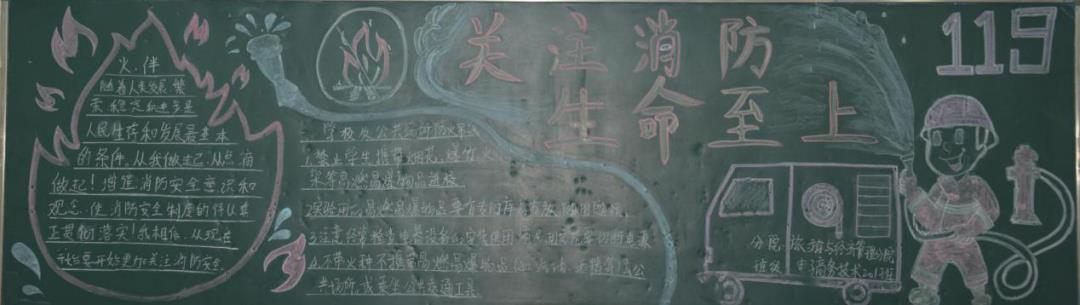 火.伴
随着人类发展.繁
荣稳定和进步是
人民生存和发展最基本
的条件.从我做起.从点滴
做起!增强消防安全意识和
观念.使消防安全制度的件认真
正贯彻落实!我相信.从现在
开始要开始更加关注消防安全.
关注消防
生命至上
119
学校及公共场所防火常识
1.禁止学生携带烟花、爆竹、火
柴等易燃易爆物品进校
2.实验用、易燃易爆物品要有专门库房存放,随用随领
3.注意经常检查电器设备的安装使用
4.不带火种不携带易燃易爆物品
共场所,或乘坐公共交通工具
分院:旅游与经济管理分院
班级:电子商务技术2013班